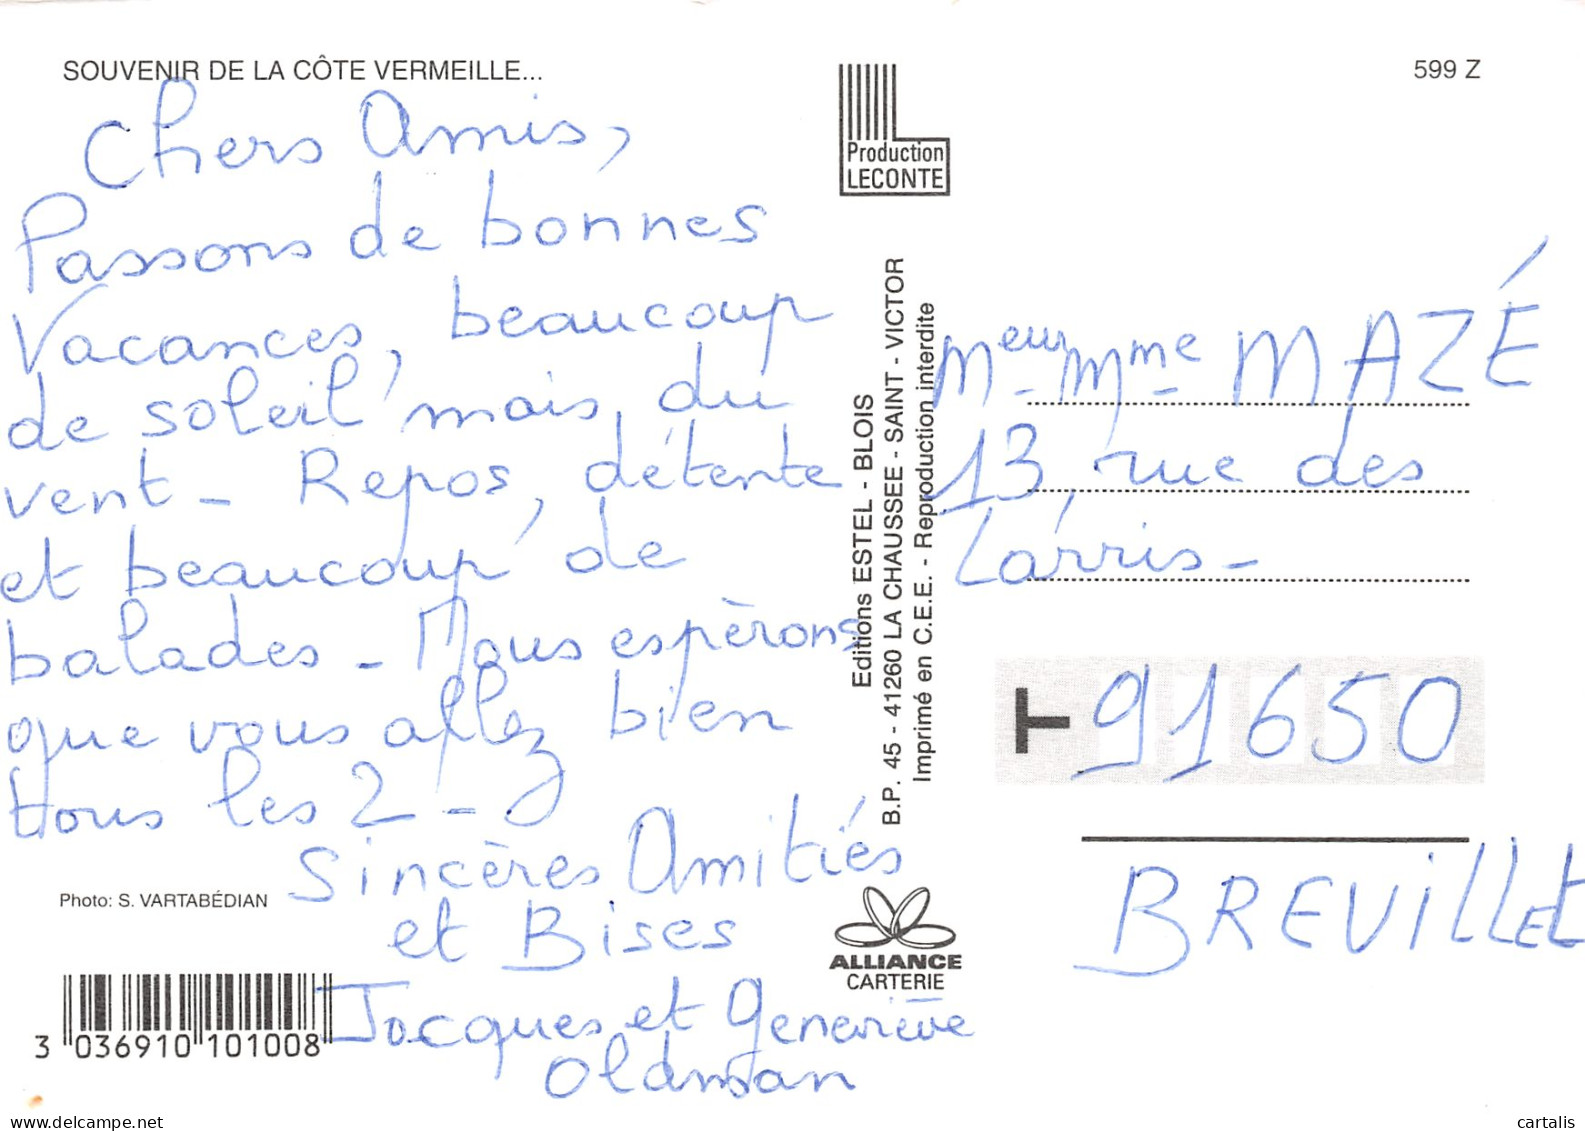 SOUVENIR DE LA CÔTE VERMEILLE...
599 Z
Chers Amis,
Passons de bonnes
Vacances, beaucoup
de soleil mais du
vent - Repos, détente
et beaucoup de
balades - Nous espèrons
que vous allez bien
tous les 2 -
Sincères Amitiés
et Bises
Jacques et Geneviève
Oldman
Photo: S. VARTABÉDIAN
3 036910 101008
Production
LECONTE
Editions ESTEL - BLOIS
B.P. 45 - 41260 LA CHAUSSEE - SAINT - VICTOR
Imprimé en C.E.E. - Reproduction interdite
ALLIANCE
CARTERIE
Meur Mme MAZÉ
13, rue des
Larris -
T 91650
BREVILLET
delcampe.net
cartalis